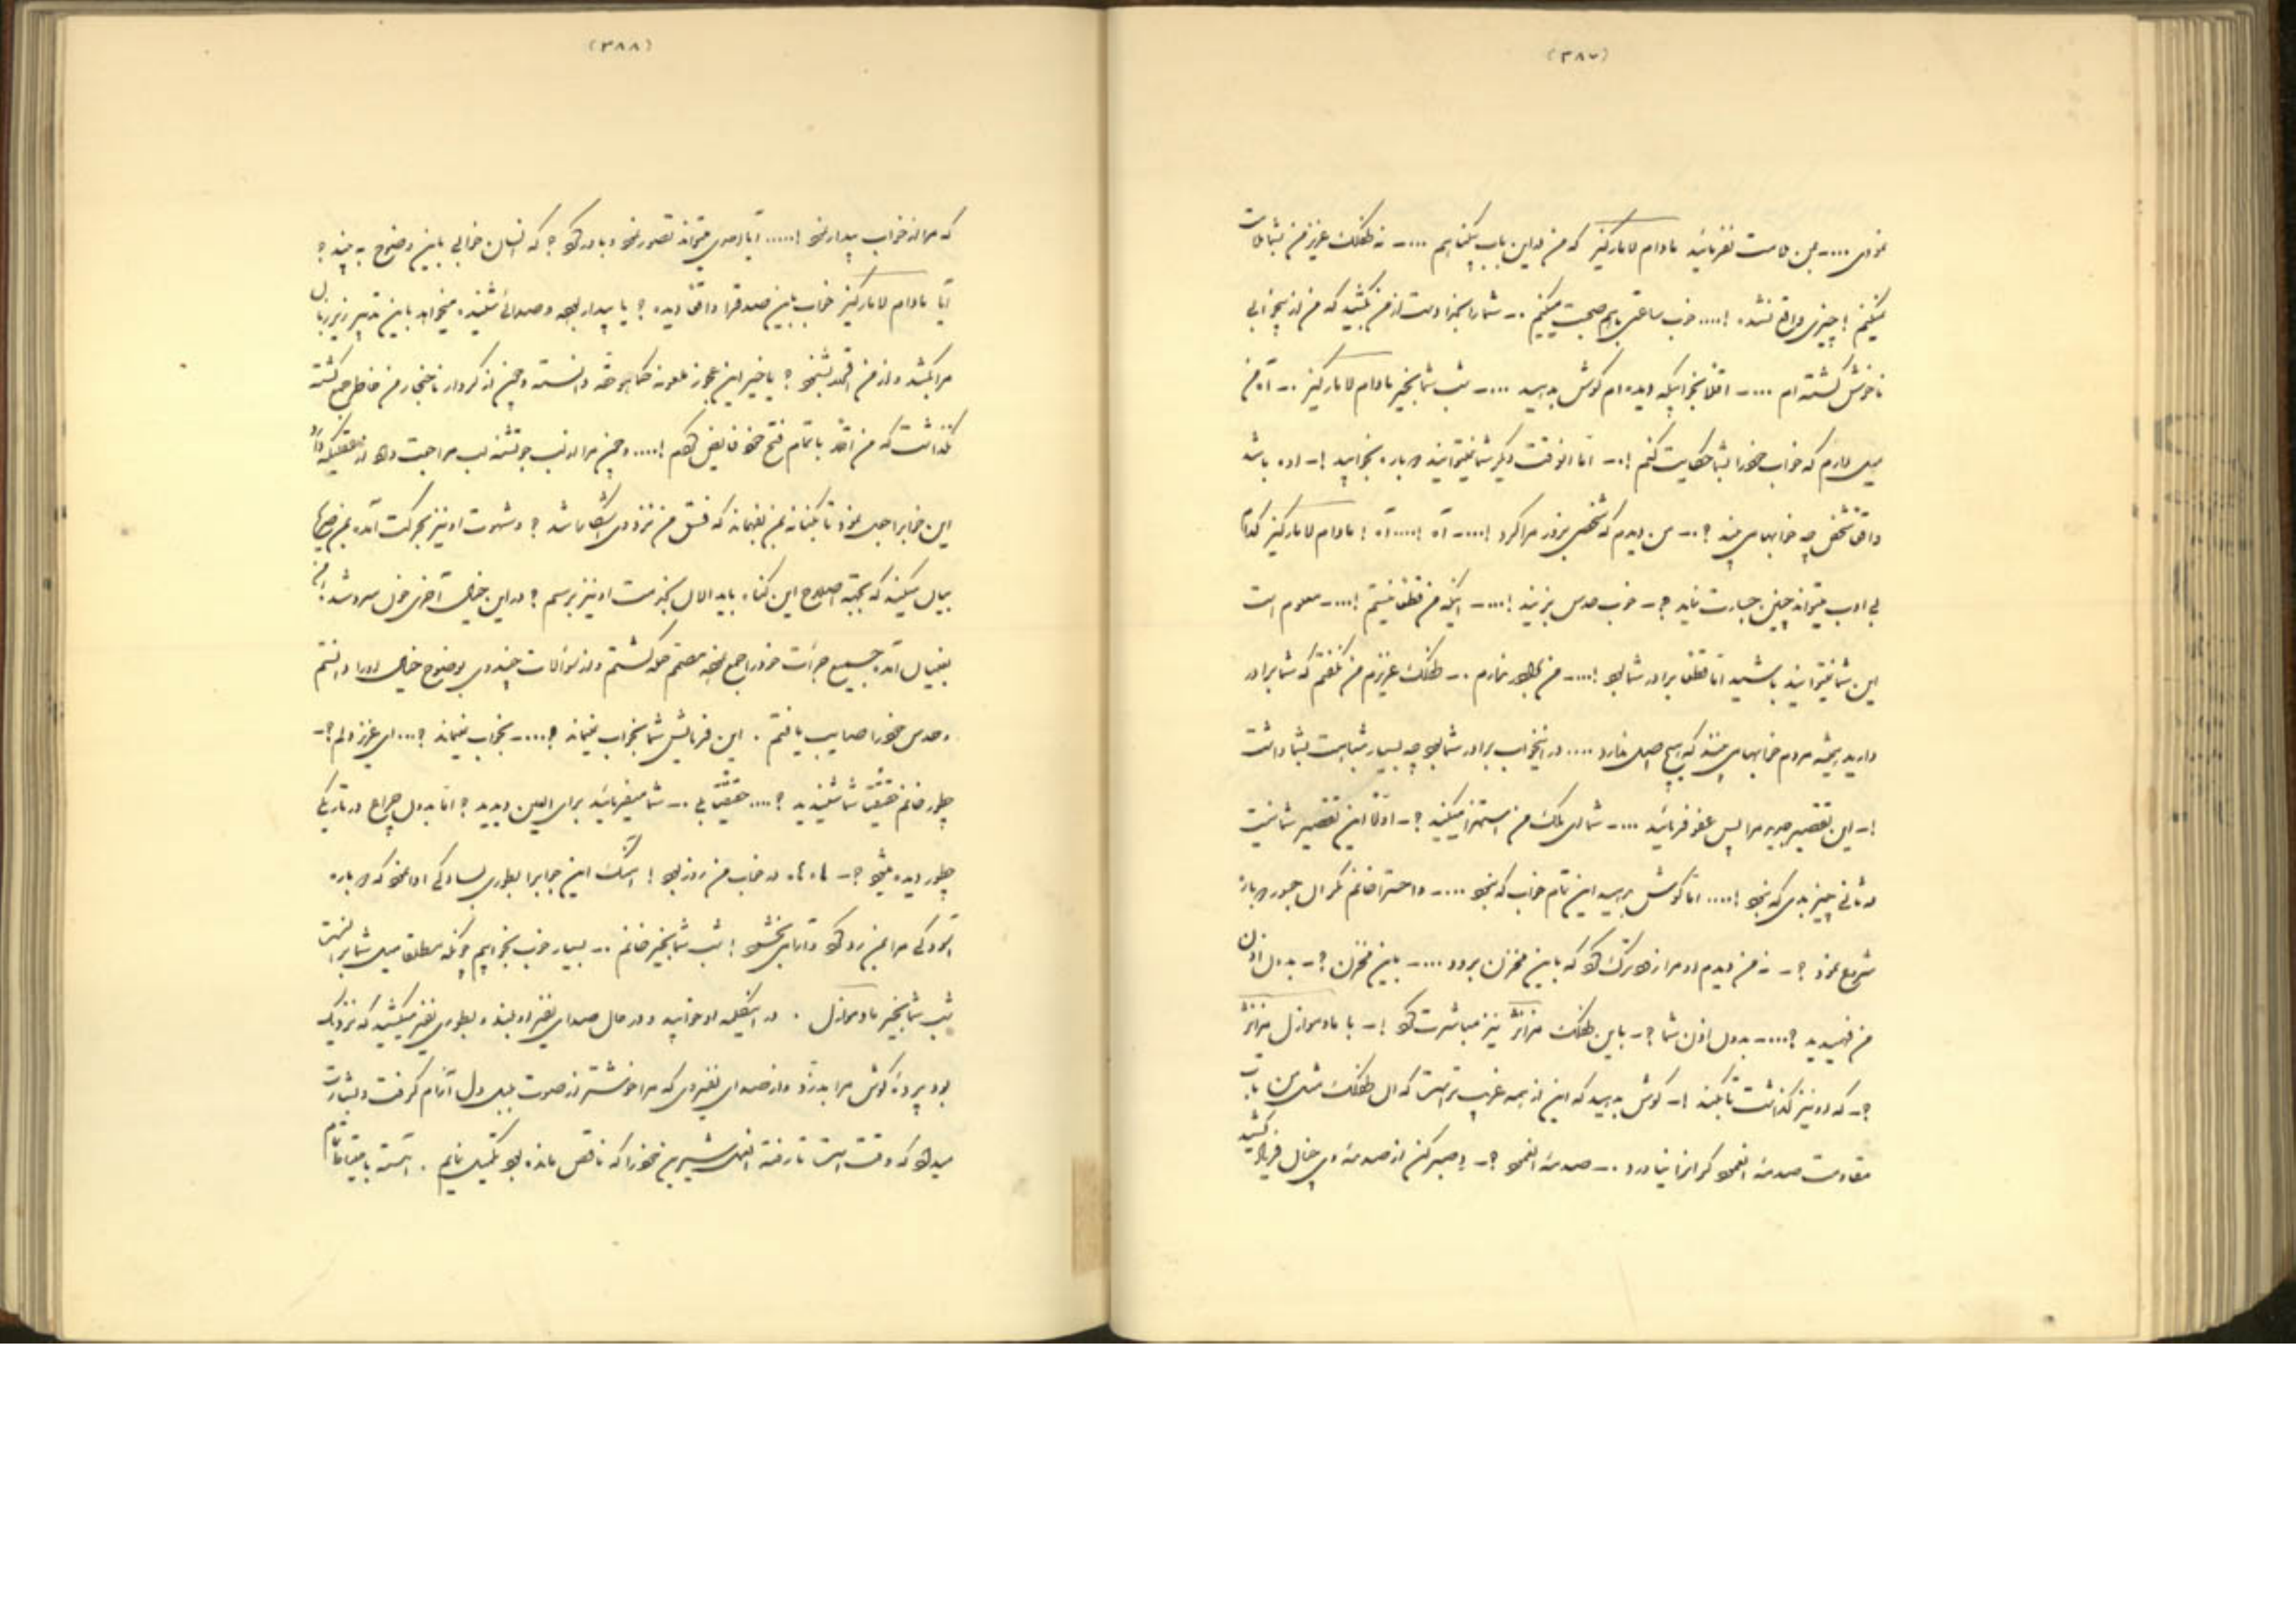 (۳۸۷)
نمودی .... - بمن ملامت نفرمائید مادام لامارکیز که من در این باب بیگناهم .... - نه طفلک عزیز من بشما ملامت
نمیکنم ! چیزی واقع نشده !.... خوب ساعتی باهم صحبت میکنیم .- شما را بخدا دست از من بکشید که من از بیخوابی
ناخوش گشته ام .... - اقلا بخوابیکه دیده ام گوش بدهید .... - شب شما بخیر مادام لامارکیز .- آه من
میل دارم که خواب خود را بشما حکایت کنم !.- اما آنوقت دیگر شما نمیتوانید دوباره بخوابید !-  باشد
واقعا شخص چه خوابها می بیند ؟.- من دیدم که شخصی بزور مرا کرد !.... - آه !.... آه ! مادام لامارکیز کدام
بی ادب میتواند چنین جسارت نماید ؟- خوب حدس بزنید !.... - اینکه من قطعا نیستم !.... - معلوم است
این شما نمیتوانید باشید اما قطعا برادر شما بود !.... - من برادر ندارم .- طفلک عزیزم من نگفتم که شما برادر
دارید همیشه مردم خوابها می بینند که هیچ اصل ندارد .... در اینخواب برادر شما بود چه بسیار شباهت بشما داشت
!- این تقصیر مرا پس عفو فرمائید .... - شما ای ملک من استهزا میکنید ؟- اولا این تقصیر شما نیست
در ثانی چیز بدی که نبود !.... اما گوش بدهید این تمام خواب که نبود .... - واحسرتا خانم مگر آن جسور دوباره
شروع نمود ؟- نه من دیدم او مرا ترک کرد که باین مخزن برود .... - باین مخزن ؟- بدون اذن
من فهمیدید ؟.... - بدون اذن شما ؟- باین طفلک نیز مباشرت کرد !- با مادموازل
؟- که او نیز گذاشت تا بکند !- گوش بدهید که این از همه غریب تر است که آن طفلک مثل من تاب
مقاومت صدمه آنعمود گران را نیاورد .- صدمه آنعمود ؟- و صبر کن از صدمه وی چنان فریاد کشید
(۳۸۸)
که مرا از خواب بیدار نمود !..... آیا آدمی میتواند تصور نمود و باور کرد ؟ که انسان خوابی باین وضوح به بیند ؟
آیا مادام لامارکیز خواب باین صدق را واقعا دیده ؟ یا بیدار بوده و صدائی شنیده میخواهد باین تدبیر زیر زبان
مرا بکشد و از من بشنود ؟ یا خیر این عجوز ملعونه کماهو حقه دانسته و چون از کردار ناهنجار من خاطر جمع گشته
نگذاشت که من بتمام فتح خود فایض گردم !.... و چون مرا از لب جو تشنه لب مراجعت داد
این خوابرا جعل نمود تا بکنایه بمن بفهماند که فسق من نزد وی آشکار باشد ؟ و شهوت او نیز بحرکت آمده بمن
بیان میکند که بجهة اصلاح این گناه باید الان بخدمت او نیز برسم ؟ در این خیال آخری خون سرد شد
بخیال آمده جمیع جرأت خود را جمع نموده مصمم حمله گشتم و از سؤالات چندی بوضوح خیال او را دانستم
و حدس خود را صایب یافتم . این فرمایش شما بخواب نمیماند ؟.... - بخواب نمیماند ؟... ای عزیز دلم ؟-
چطور خانم حقیقتا شما شنیدید ؟.... حقیقتا بی .- شما میفرمائید برای العین دیدید ؟ اما بدون چراغ در تاریکی
چطور دیده میشود ؟- ها ها در خواب من روز بود ! این جوابرا بطوری بسادگی ادا نمود که دوباره
آسودگی مرا بمن رد کرد و تسلی بخشود ! شب شما بخیر خانم .- بسیار خوب بخوابیم چونکه مطلقا میل شما براینست
شب شما بخیر مادموازل . در دقیقه او خوابید و در حال صدای نفیر او بلند و بطوری نفیر میکشید که نزدیک
بود پرده گوش مرا بدرد و از صدای نفیری که مرا خوشتر از صوت بلبل دل آرام گرفت و بشارت
میداد که وقت است تا رفته آنعمل شیرین خود را که ناقص مانده بود تکمیل نمایم . آهسته با